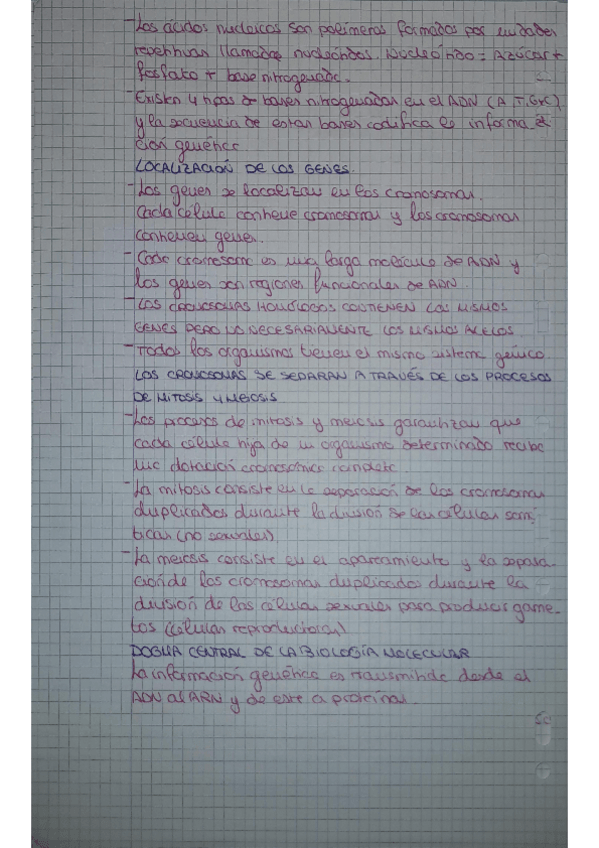 - Los ácidos nucleicos son polímeros formados por unidades
repetitivas llamadas nucleótidos. Nucleótido = Azúcar +
fosfato + base nitrogenada.
- Existen 4 tipos de bases nitrogenadas en el ADN (A, T, G y C)
y la secuencia de estas bases codifica la informa
ción genética
LOCALIZACIÓN DE LOS GENES.
- Los genes se localizan en los cromosomas.
Cada célula contiene cromosomas y los cromosomas
contienen genes.
- Cada cromosoma es una larga molécula de ADN y
los genes son regiones funcionales de ADN.
- LOS CROMOSOMAS HOMÓLOGOS CONTIENEN LOS MISMOS
GENES PERO NO NECESARIAMENTE LOS MISMOS ALELOS
- Todos los organismos tienen el mismo sistema
LOS CROMOSOMAS SE SEPARAN A TRAVÉS DE LOS PROCESOS
DE MITOSIS Y MEIOSIS
- Los procesos de mitosis y meiosis garantizan que
cada célula hija de un organismo determinado reciba
una dotación cromosómica completa.
- La mitosis consiste en la separación de los cromosomas
duplicados durante la división de las células somá
ticas (no sexuales)
- La meiosis consiste en el apareamiento y la separa
ción de los cromosomas duplicados durante la
división de las células sexuales para producir game-
tos (células reproductoras)
DOGMA CENTRAL DE LA BIOLOGÍA MOLECULAR
La información genética es transmitida desde el
ADN al ARN y de este a proteínas.